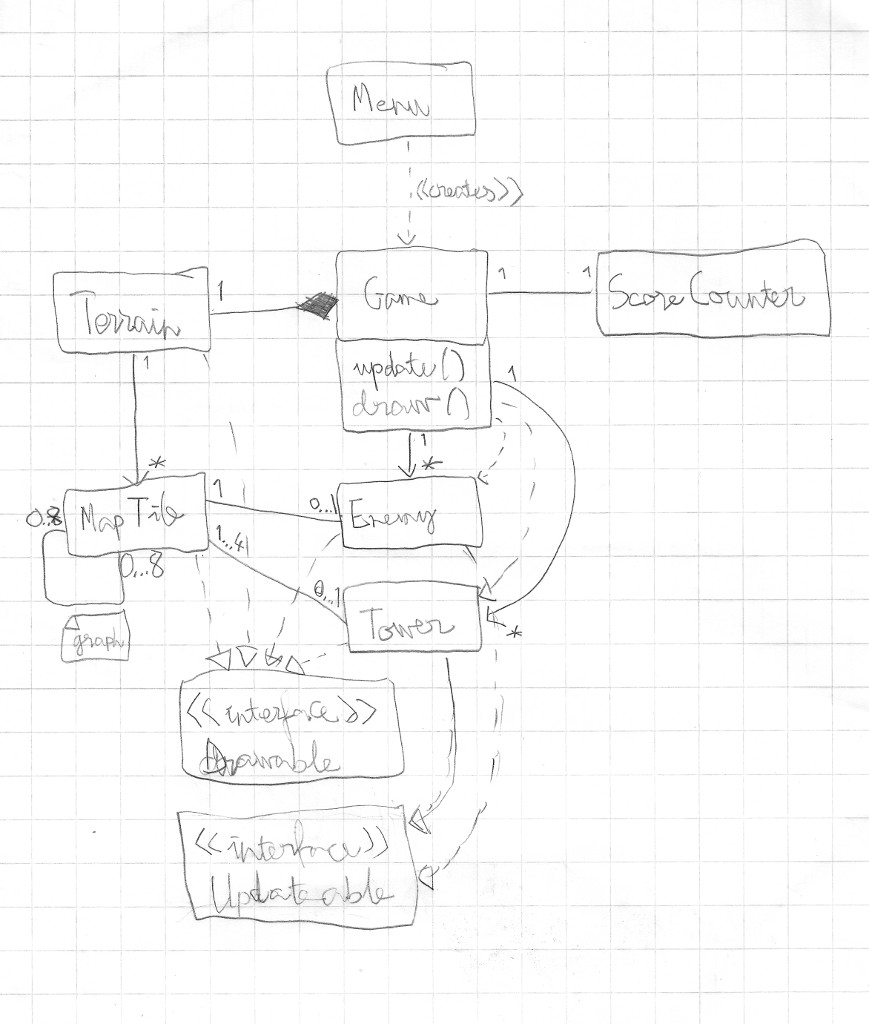 Menu
<<creates>>
Terrain
1
Game
1
1
Score Counter
update()
draw()
1
1
1
*
*
Map Tile
1
0..1
Enemy
0..8
1...4
0...8
0,..1
Tower
*
graph
<<interface>>
Drawable
<<interface>>
Updateable